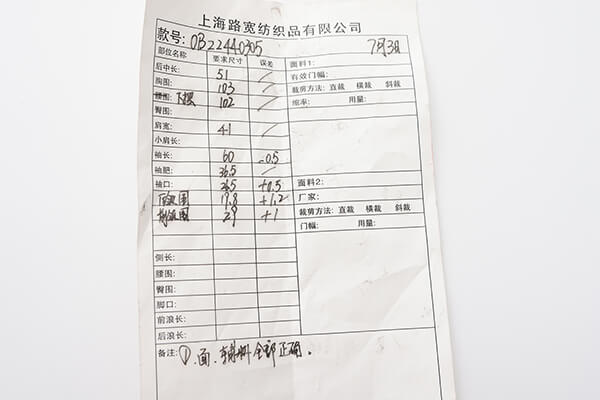 上海路宽纺织品有限公司
款号: OB22440305 7月3日
部位名称 要求尺寸 误差 面料1:
后中长: 51 / 有效门幅:
胸围: 103 / 裁剪方法: 直裁 横裁 斜裁
腰围: 下摆 102 / 缩率: 用量:
臀围:
肩宽: 41 /
小肩长:
袖长: 60 -0.5
袖肥: 36.5 /
袖口: 26.5 +0.5 面料2:
19.8 +1.2 厂家:
29 +1 裁剪方法: 直裁 横裁 斜裁
门幅: 用量:
侧长:
腰围:
臀围:
脚口:
前浪长:
后浪长:
备注: ①.面、辅料全部正确。